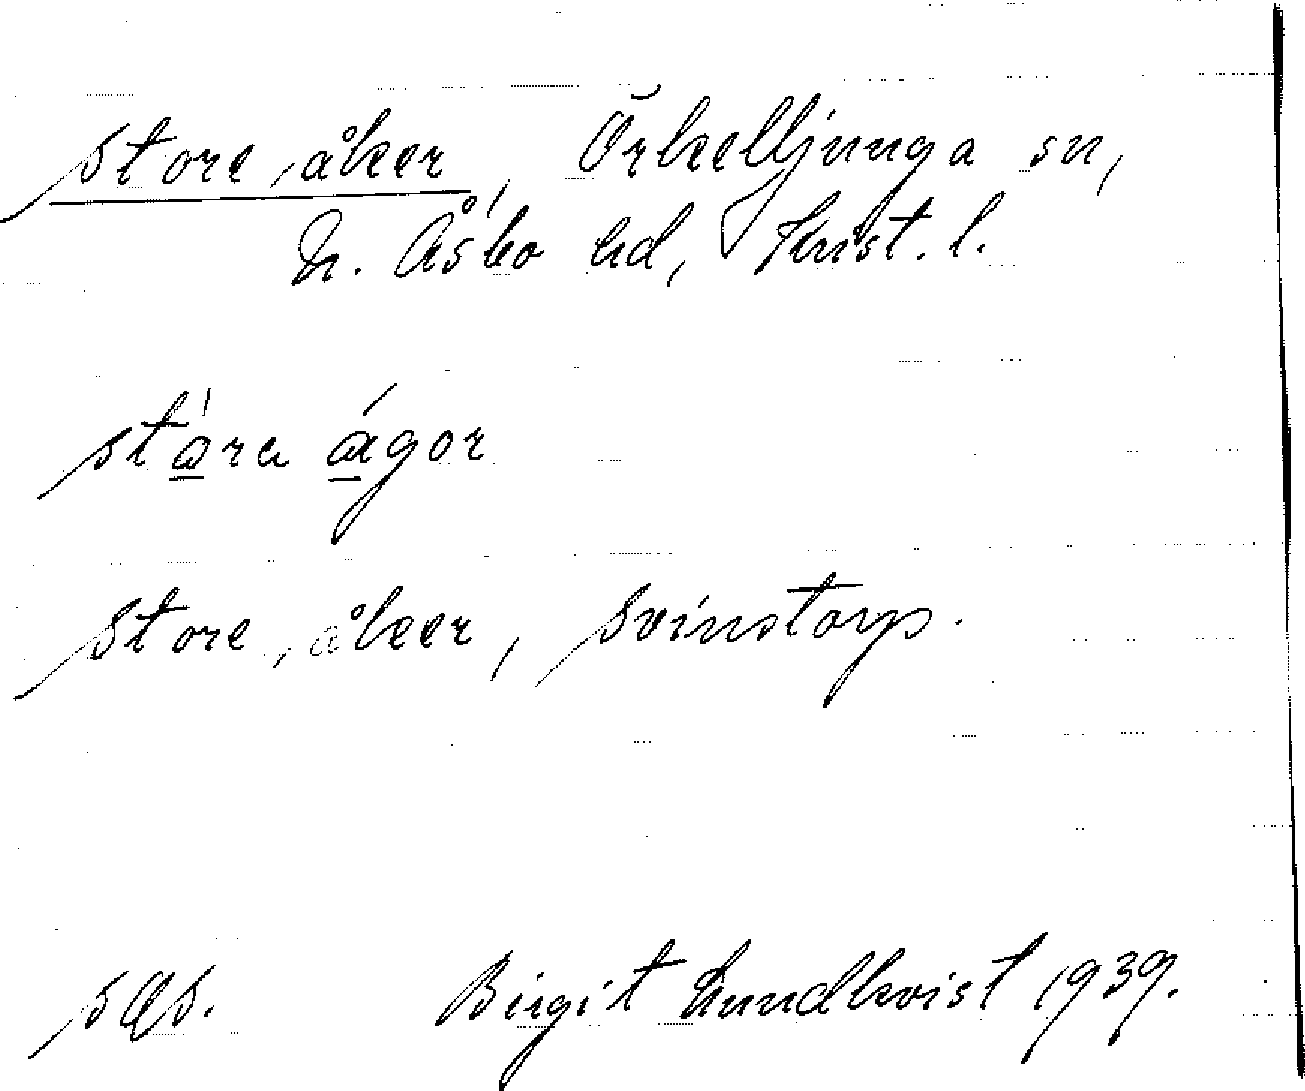 store, åker, Örkelljunga sn,
N. Åsbo hd, Krist. l.
stóra ágor
store, åker, Svinstorp.
sas.
Birgit Lundkvist 1939.